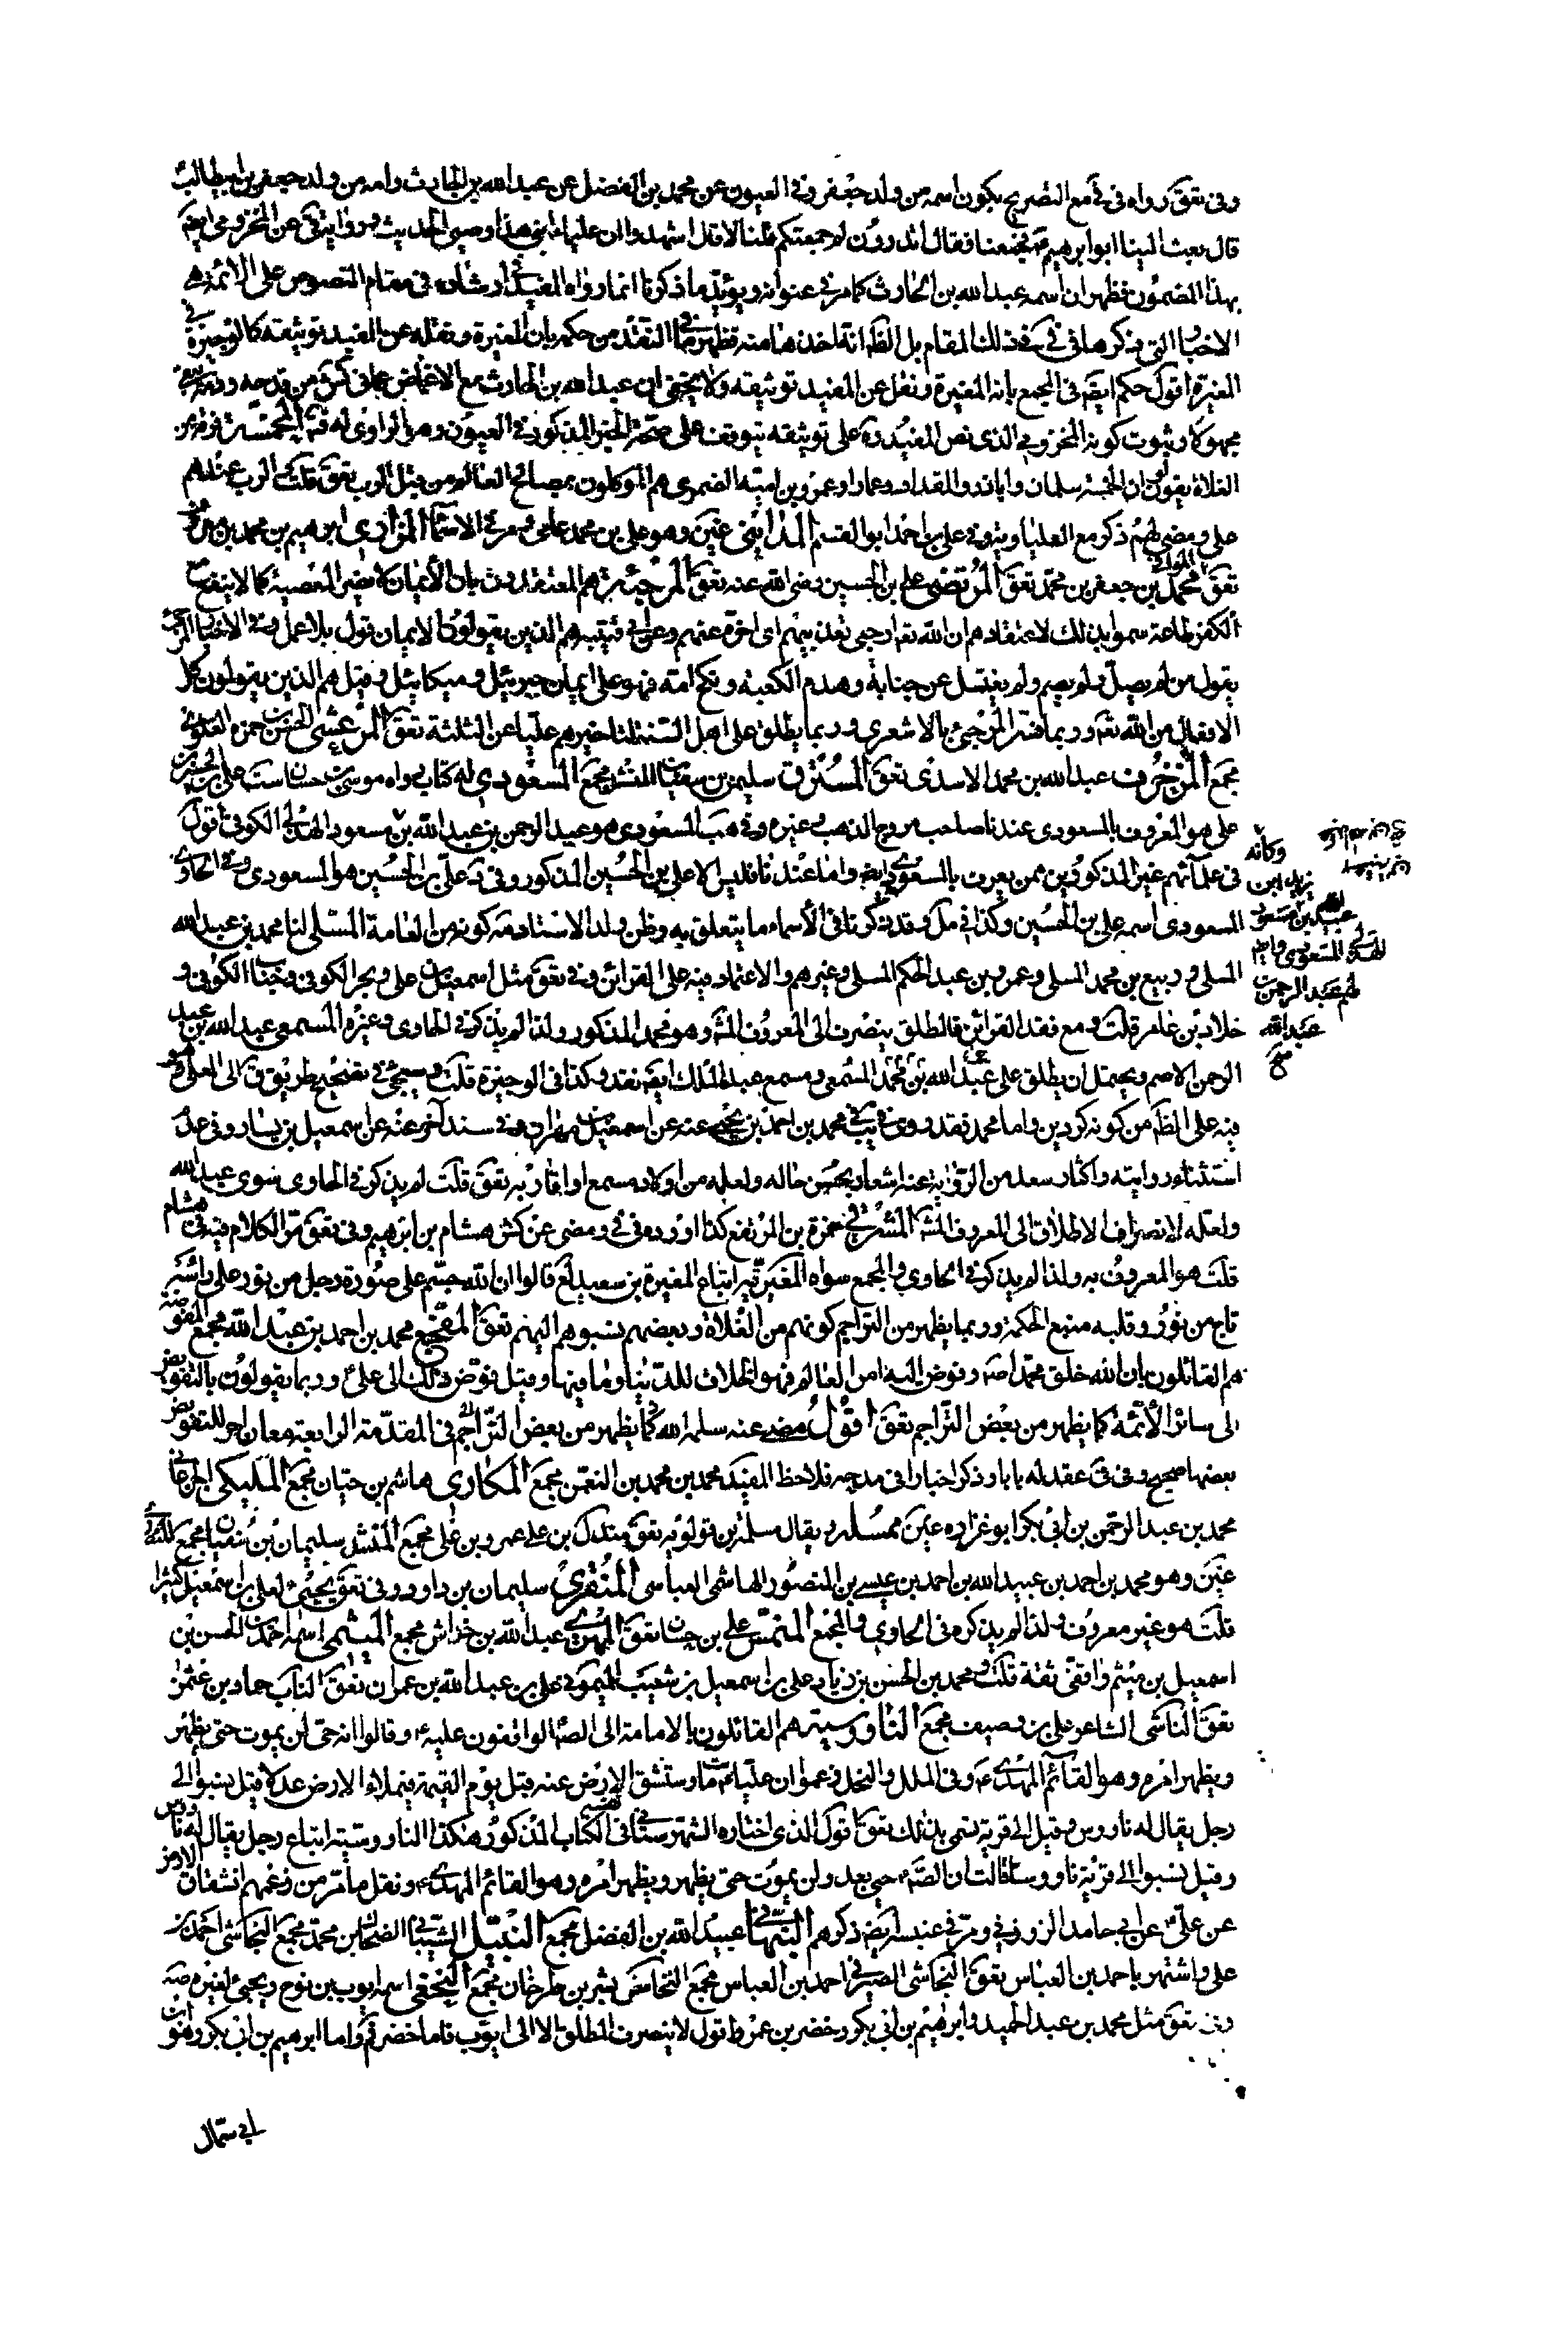 وفى تعق رواه فى فى مع التصريح بكون اسمه من ولد جعفر وفى العيون عن محمد بن الفضل عن عبد الله بن الحارث وامه من ولد جعفر بن ابيطالب
قال بعث الينا ابو ابرهيم فجمعنا فقال اتدرون لم جمعتكم قلنا لا قال اشهدوا ان عليا ابنى هذا وصيى الحديث عن المخزومى ايضا
بهذا المضمون فظهر ان اسمه عبد الله بن الحارث كما مر فى عنوانه ويؤيد ما ذكرنا انما رواه المفيد فى ارشاده فى مقام النصوص على الائمة
الاخبار التى ذكرها فى فى فى ذلك المقام بل الظ انه اخذها منه فظهر ما فى النقد من حكمه بان المغيرة ونقله عن المفيد توثيقه كالوجيزة فى
المغيرة اقول حكم ايضا فى المجمع بانه المغيرة ونقل عن المفيد توثيقه ولا يخفى ان عبد الله بن الحارث مع الاغماض عما فى كش من قدحه
مجهولا وثبوت كونه المخزومى الذى نص المفيد ره على توثيقه يتوقف على صحة الخبر المذكور فى العيون وهو الراوى له المخمسة فرقة من
الغلاة يقولون ان الخمسة سلمان وابا ذر والمقداد وعمارا وعمرو بن امية الضمرى هم الموكلون بمصالح العالم من قبل الرب تعق قلت الرب عندهم
على ومضى لهم ذكر مع العليا وية فى على بن احمد ابو القسم المدائنى عين وهو على بن محمد على ما مر فى الاسماء المزارى ابرهيم بن محمد بن
تعق محمد بن جعفر بن محمد تعق المرتضى على بن الحسين رضى الله عنه تعق المرجئة هم المعتقدون بان الايمان لا يضر المعصية كما لا ينفع مع
الكفر طاعة سموا بذلك لاعتقادهم ان الله تعالى ارجى تعذيبهم اى اخره عنهم وعن ابى قتيبة هم الذين يقولون الايمان قول بلا عمل وفى الاخبار المرجئ
يقول من لم يصل ولم يصم ولم يغتسل عن جنابة وهدم الكعبة ونكح امه فهو على ايمان جبرئيل وميكائيل وقيل هم الذين يقولون كل
الافعال من الله تعالى وربما فسر المرجئ بالاشعرى وربما يطلق على اهل السنة لتاخيرهم عليا عن الثلثة تعق المرعشى الحسن بن حمزة العلوى
مجمع المزخرف عبد الله بن محمد الاسدى تعق المسترق سليمن بن سفيان المنشد مجمع المسعودى له كتاب رواه موسى بن حسان ست على بن الحسين بن
على هو المعروف بالمسعودى عندنا صاحب مروج الذهب وغيره وفى هب المسعودى هو عبد الرحمن بن عبد الله بن مسعود الهذلى الكوفى اقول
فى علمائهم غير المذكورين ممن يعرف بالمسعودى ايضا واما عندنا فليس الا على بن الحسين المذكور وفى د على بن الحسين هو المسعودى وفى الحاوى
المسعودى اسمه على بن الحسين وكذا فى مل وقد ذكرنا فى الاسماء ما يتعلق به وظن ولد الاستاد مد كونه من العامة المسلى لنا محمد بن عبد الله
المسلى وربيع بن محمد المسلى وعمرو بن عبد الحكم المسلى وغيرهم والاعتماد فيه على القرائن وفى تعق مثل اسمعيل بن على وبحر الكوفى وخباب الكوفى و
خلاد بن عامر قلت ومع فقد القرائن فالمطلق ينصرف الى المعروف المش وهو محمد المذكور ولذا لم يذكر فى الحاوى غيره المسمعى عبد الله بن عبد
الرحمن الاصم ويحتمل ان يطلق على عبد الله بن محمد المسمعى ومسمع بن عبد الملك ايضا نقد وكذا فى الوجيزة قلت وسيجئ فى تضحيح طريق ق الى العلى
فيه على الظ من كونه كردين واما محمد فقد روى فى يب محمد بن احمد بن يحيى عنه عن اسمعيل بن مهران وفى سند آخر عنه عن اسمعيل بن يسار وفى عدم
استثناء روايته واكثار سعد من الرواية عنه اشعار بحسن حاله ولعله من اولاد مسمع او اقاربه تعق قلت لم يذكر فى الحاوى سوى عبد الله
ولعله لانصراف الاطلاق الى المعروف المش المشرقى حمزة بن المرتفع كذا اورده فى فى ومضى عن كش هشام بن ابرهيم وفى تعق مر الكلام فيه فى هشام
قلت هو المعروف به ولذا لم يذكر فى الحاوى والمجمع سواه المغيرية اتباع المغيرة بن سعيد لع قالوا ان الله جسم على صورة رجل من نور على راسه
تاج من نور وقلبه منبع الحكمة وربما يظهر من التراجم كونهم من الغلاة وبعضهم نسبوهم اليهم تعق المفجع محمد بن احمد بن عبد الله مجمع المفوضة
هم القائلون بان الله خلق محمدا ص وفوض اليه امر العالم فهو الخلاق للدنيا وما فيها وقيل فوض ذلك الى على وربما يقولون بالتفويض
الى سائر الائمة كما يظهر من بعض التراجم تعق اقول مضى عنه سلمه الله كما يظهر من بعض التراجم فى المقدمة الرابعة معان اخر للتفويض
بعضها صحيح وفى فى عقد له بابا وذكر اخبارا فى مدحه فلاحظ المفيد محمد بن محمد بن النعمن مجمع المكارى هاشم بن حيان مجمع المليكى الجرجانى
محمد بن عبد الرحمن بن ابى بكر ابو غرارة عين ممسلة ويقال مسلمة بن قولويه تعق مندل بن على عمرو بن على مجمع المنشد سليمان بن سفيان مجمع
عين وهو محمد بن احمد بن عبيد الله بن احمد بن عيسى بن المنصور الهاشمى العباسى المنقرى سليمان بن داود وفى تعق يجئ لعلى بن اسمعيل كثيرا
قلت هو غير معروف ولذا لم يذكره فى الحاوى والمجمع المنمس على بن حسان تعق المهرى عبد الله بن خداش مجمع الميثمى اسمه احمد بن الحسن بن
اسمعيل بن ميثم واقفى ثقة قلت ومحمد بن الحسن بن زياد وعلى بن اسمعيل بن شعيب الميمونى على بن عبد الله بن عمران تعق الناب حماد بن عثمن
تعق الناشى الشاعر على بن وصيف مجمع الناووسية هم القائلون بالامامة الى الص الواقفون عليه ع وقالوا انه حى لن يموت حتى يظهر
ويظهر امره وهو القائم المهدى ع وفى الملل والنحل زعموا ان عليا مات وستنشق الارض عنه قبل يوم القيمة فيملاء الارض عدلا قيل نسبوا الى
رجل يقال له ناووس وقيل الى قرية تسمى بذلك تعق اقول الذى اختاره الشهرستانى فى الكتاب المذكور هكذا الناووسية اتباع رجل يقال له ناووس
وقيل نسبوا الى قرية ناووسا قالت ان الص ع حى بعد ولن يموت حتى يظهر ويظهر امره وهو القائم المهدى ع ونقل ما مر من زعمهم انشقاق الارض
عن على ع عن ابى حامد الزوزنى ومر فى عنبسة ايض ذكرهم النبهانى عبيد الله بن الفضل مجمع النبيل الشيبانى الضحاك بن محمد مجمع النجاشى احمد بن
على واشتهر باحمد بن العباس تعق النجاشى الصيرفى احمد بن العباس مجمع النخاس بشر بن طرخان مجمع النخعى اسمه ايوب بن نوح ويجئ لغيره صه
وفى تعق مثل محمد بن عبد الحميد وابرهيم بن ابى بكر وخضر بن عمرو اقول لا ينصرف المطلق الا الى ايوب فاما خضر فم واما ابرهيم بن ابى بكر وهو ابن
وكانه
يزيد ابن
عبد الله بن مسعود
المسعودى وايضا
لهم عبد الرحمن
عبد الله
ابى سمال